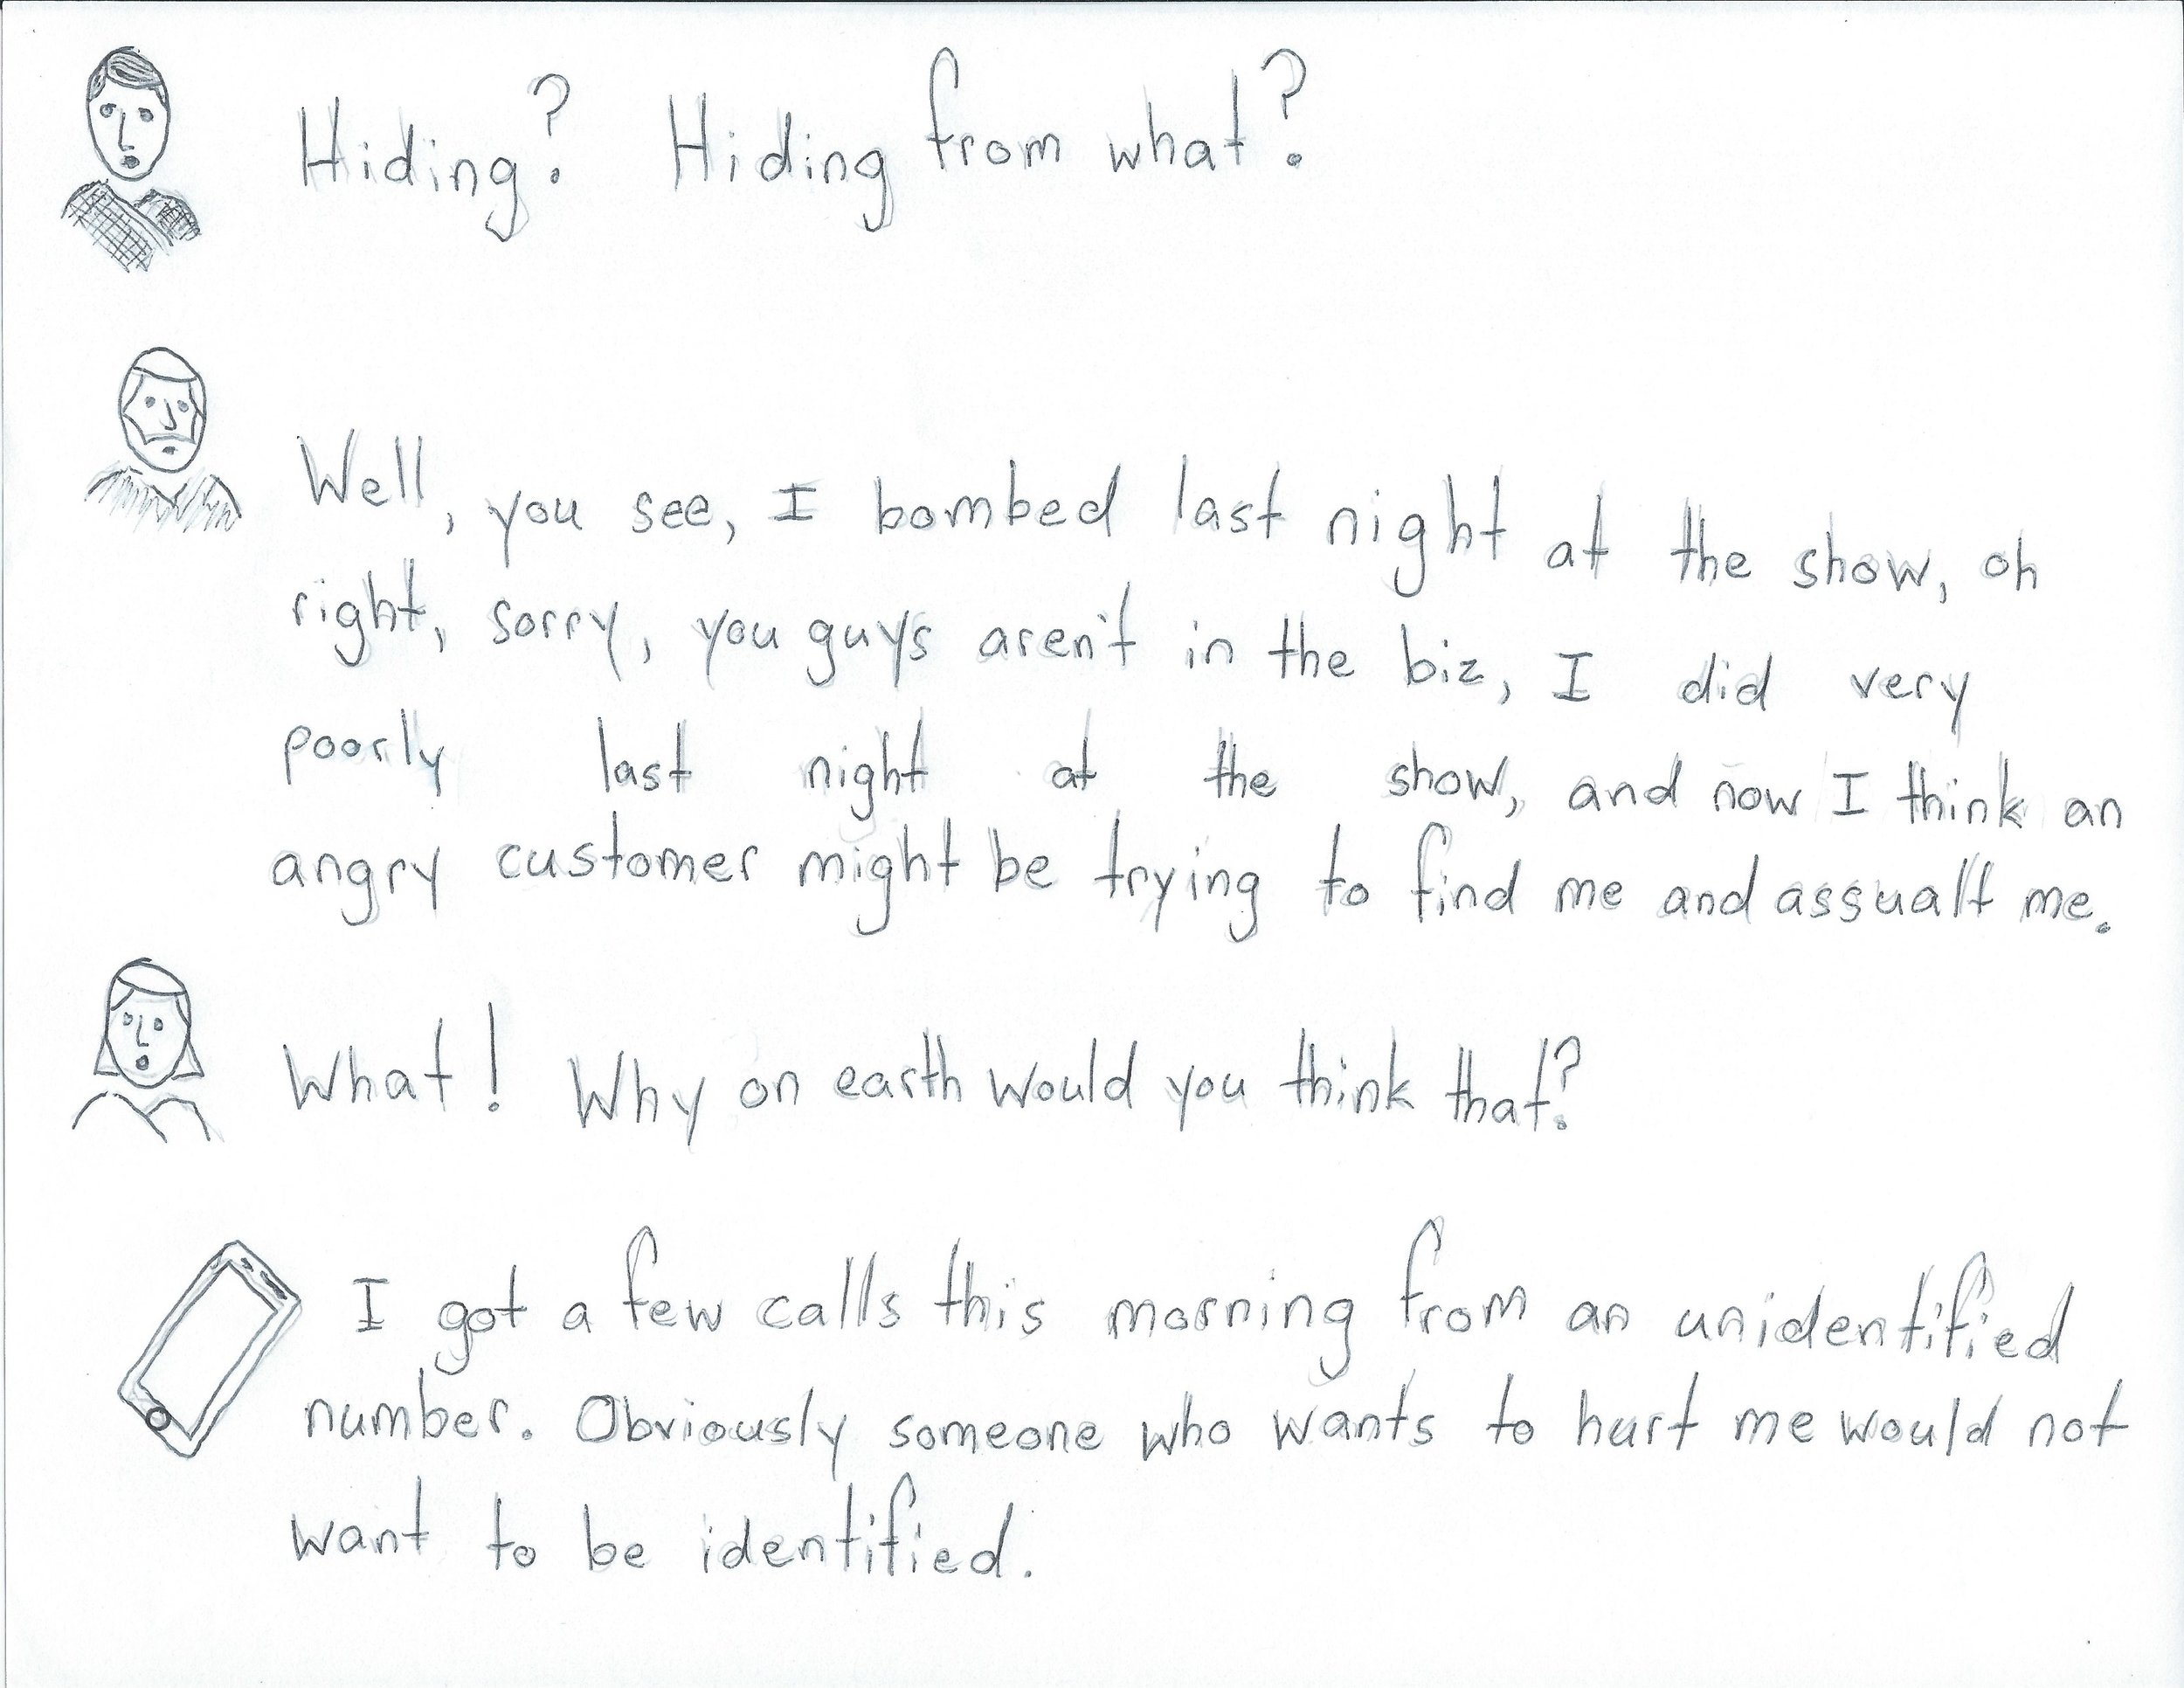 Hiding? Hiding from what?
Well, you see, I bombed last night at the show, oh
right, sorry, you guys aren't in the biz, I did very
poorly last night at the show, and now I think an
angry customer might be trying to find me and assualt me.
What! Why on earth would you think that?
I got a few calls this morning from an unidentified
number. Obviously someone who wants to hurt me would not
want to be identified.